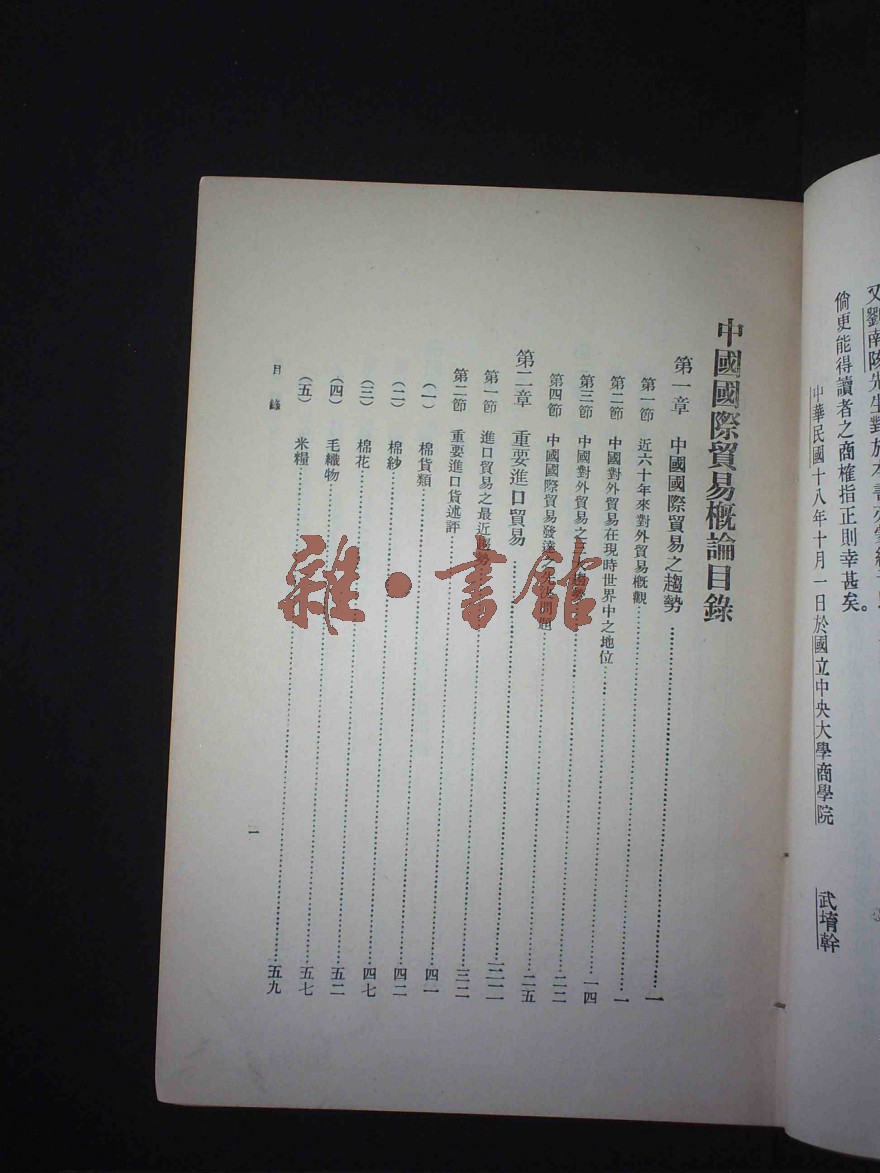 倘更能得讀者之商榷指正則幸甚矣。
中華民國十八年十月一日於國立中央大學商學院 武堉幹
中國國際貿易概論目錄
第一章 中國國際貿易之趨勢……一
第一節 近六十年來對外貿易概觀……一
第二節 中國對外貿易在現時世界中之地位……一四
第三節 中國對外貿易之三大趨勢……二二
第四節 中國國際貿易發達之先決問題……二五
第二章 重要進口貿易……三二
第一節 進口貿易之最近趨勢……三二
第二節 重要進口貨述評……四一
(一) 棉貨類……四二
(二) 棉紗……四七
(三) 棉花……五二
(四) 毛織物……五七
(五) 米糧……五九
目錄
一
雜·書館